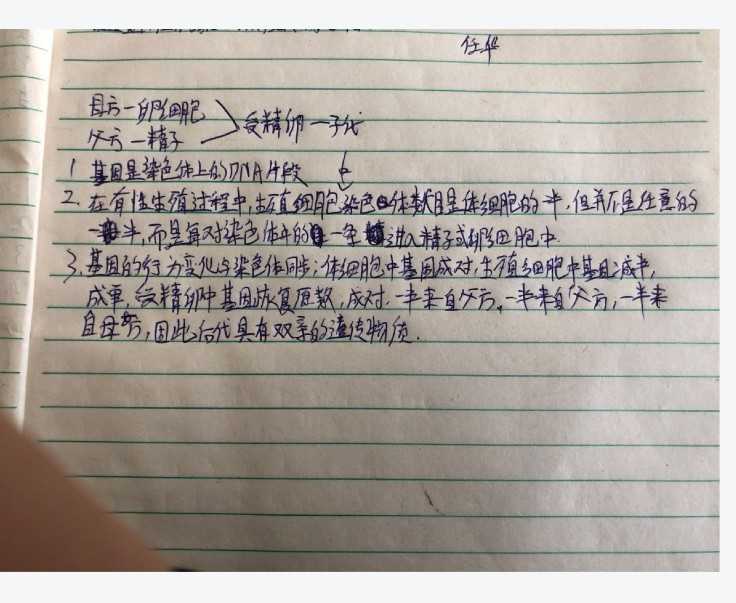 任华
母方一卵细胞
父方一精子
受精卵一子代
1 基因是染色体上的DNA片段
2. 在有性生殖过程中,生殖细胞染色体数目是体细胞的一半,但并不是任意的
一半,而是每对染色体中的一条进入精子或卵细胞中.
3. 基因的行为变化与染色体同步:体细胞中基因成对,生殖细胞中基因减半,
成单,受精卵中基因恢复原数,成对.一半来自父方,一半来自父方,一半来
自母方,因此后代具有双亲的遗传物质.